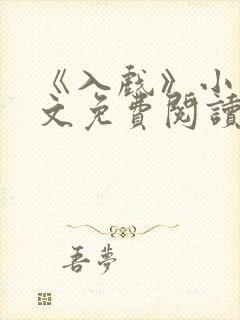 《入戲》小
文免費閱讀
吾夢